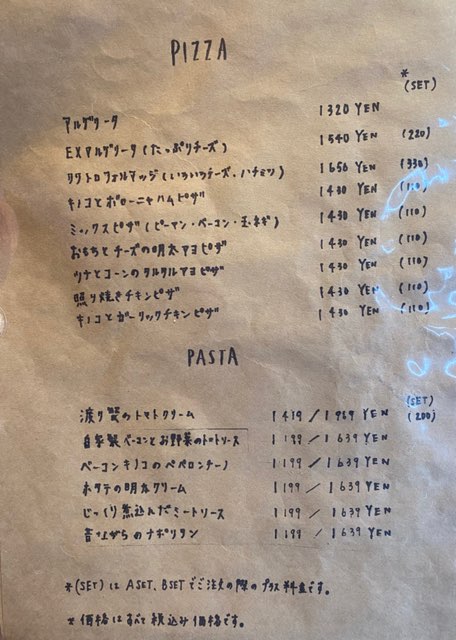 PIZZA
* (SET)
アルゲリータ 1320 YEN
EXアルゲリータ(たっぷりチーズ) 1540 YEN (220)
クワトロフォルマッジ(いろいろチーズ、ハチミツ) 1650 YEN (330)
キノコとボローニャハムピザ 1430 YEN (110)
ミックスピザ(ピーマン・ベーコン・玉ネギ) 1430 YEN (110)
おもちとチーズの明太マヨピザ 1430 YEN (110)
ツナとコーンのタルタルマヨピザ 1430 YEN (110)
照り焼きチキンピザ 1430 YEN (110)
キノコとガーリックチキンピザ 1430 YEN (110)
PASTA
(SET)
渡り蟹のトマトクリーム 1419 / 1969 YEN (200)
自家製ベーコンとお野菜のトマトソース 1199 / 1639 YEN
ベーコンキノコのペペロンチーノ 1199 / 1639 YEN
ホタテの明太クリーム 1199 / 1639 YEN
じっくり煮込んだミートソース 1199 / 1639 YEN
昔ながらのナポリタン 1199 / 1639 YEN
*(SET)は ASET、BSETでご注文の際のプラス料金です。
*価格はすべて税込み価格です。